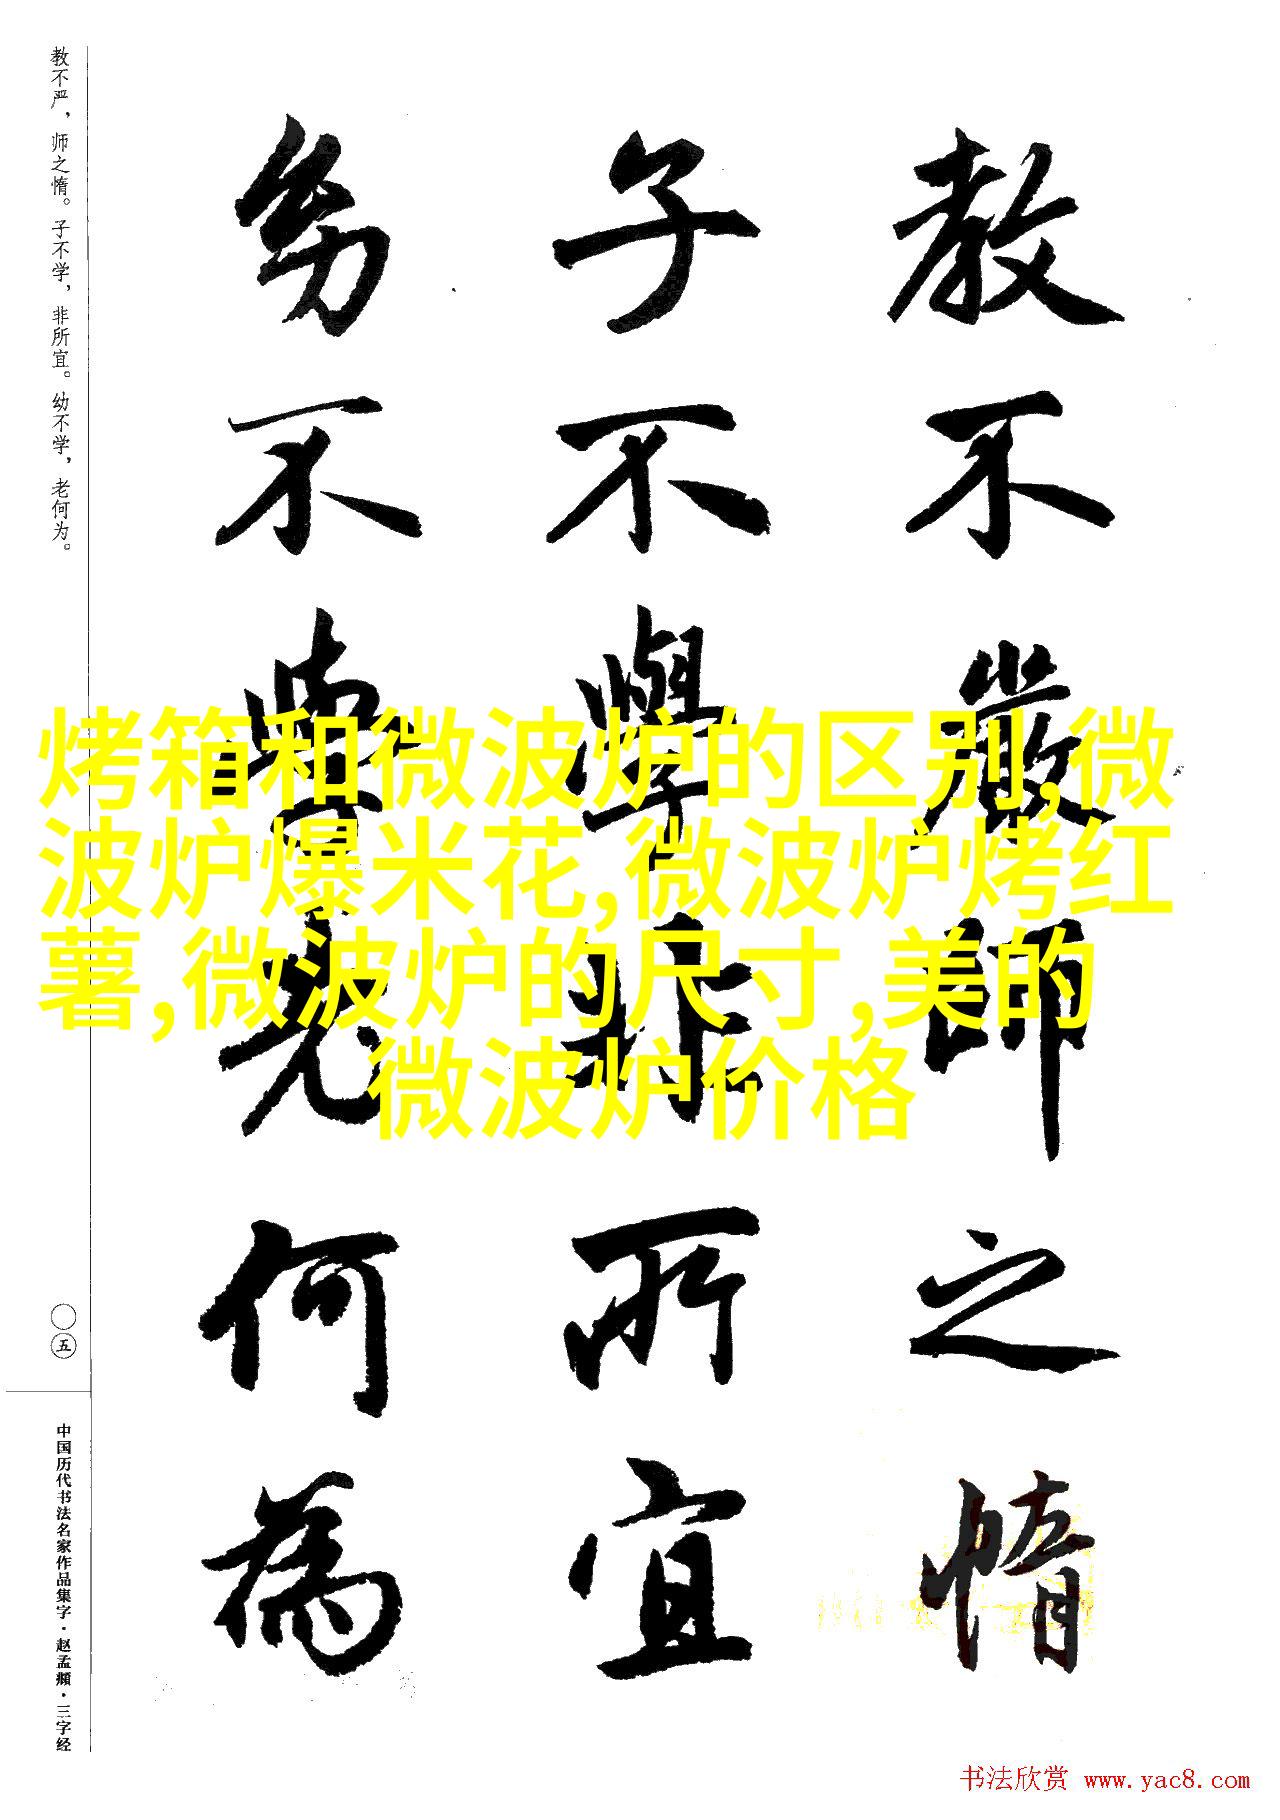 教不嚴師之惰
子不學非所宜
幼不學老何為
教不严，师之惰。子不学，非所宜。幼不学，老何为。
〇五
中国历代书法名家作品集字·赵孟頫·三字经
烤箱和微波炉的区别,微
波炉爆米花,微波炉烤红
薯,微波炉的尺寸,美的
微波炉价格
书法欣赏 www.yac8.com